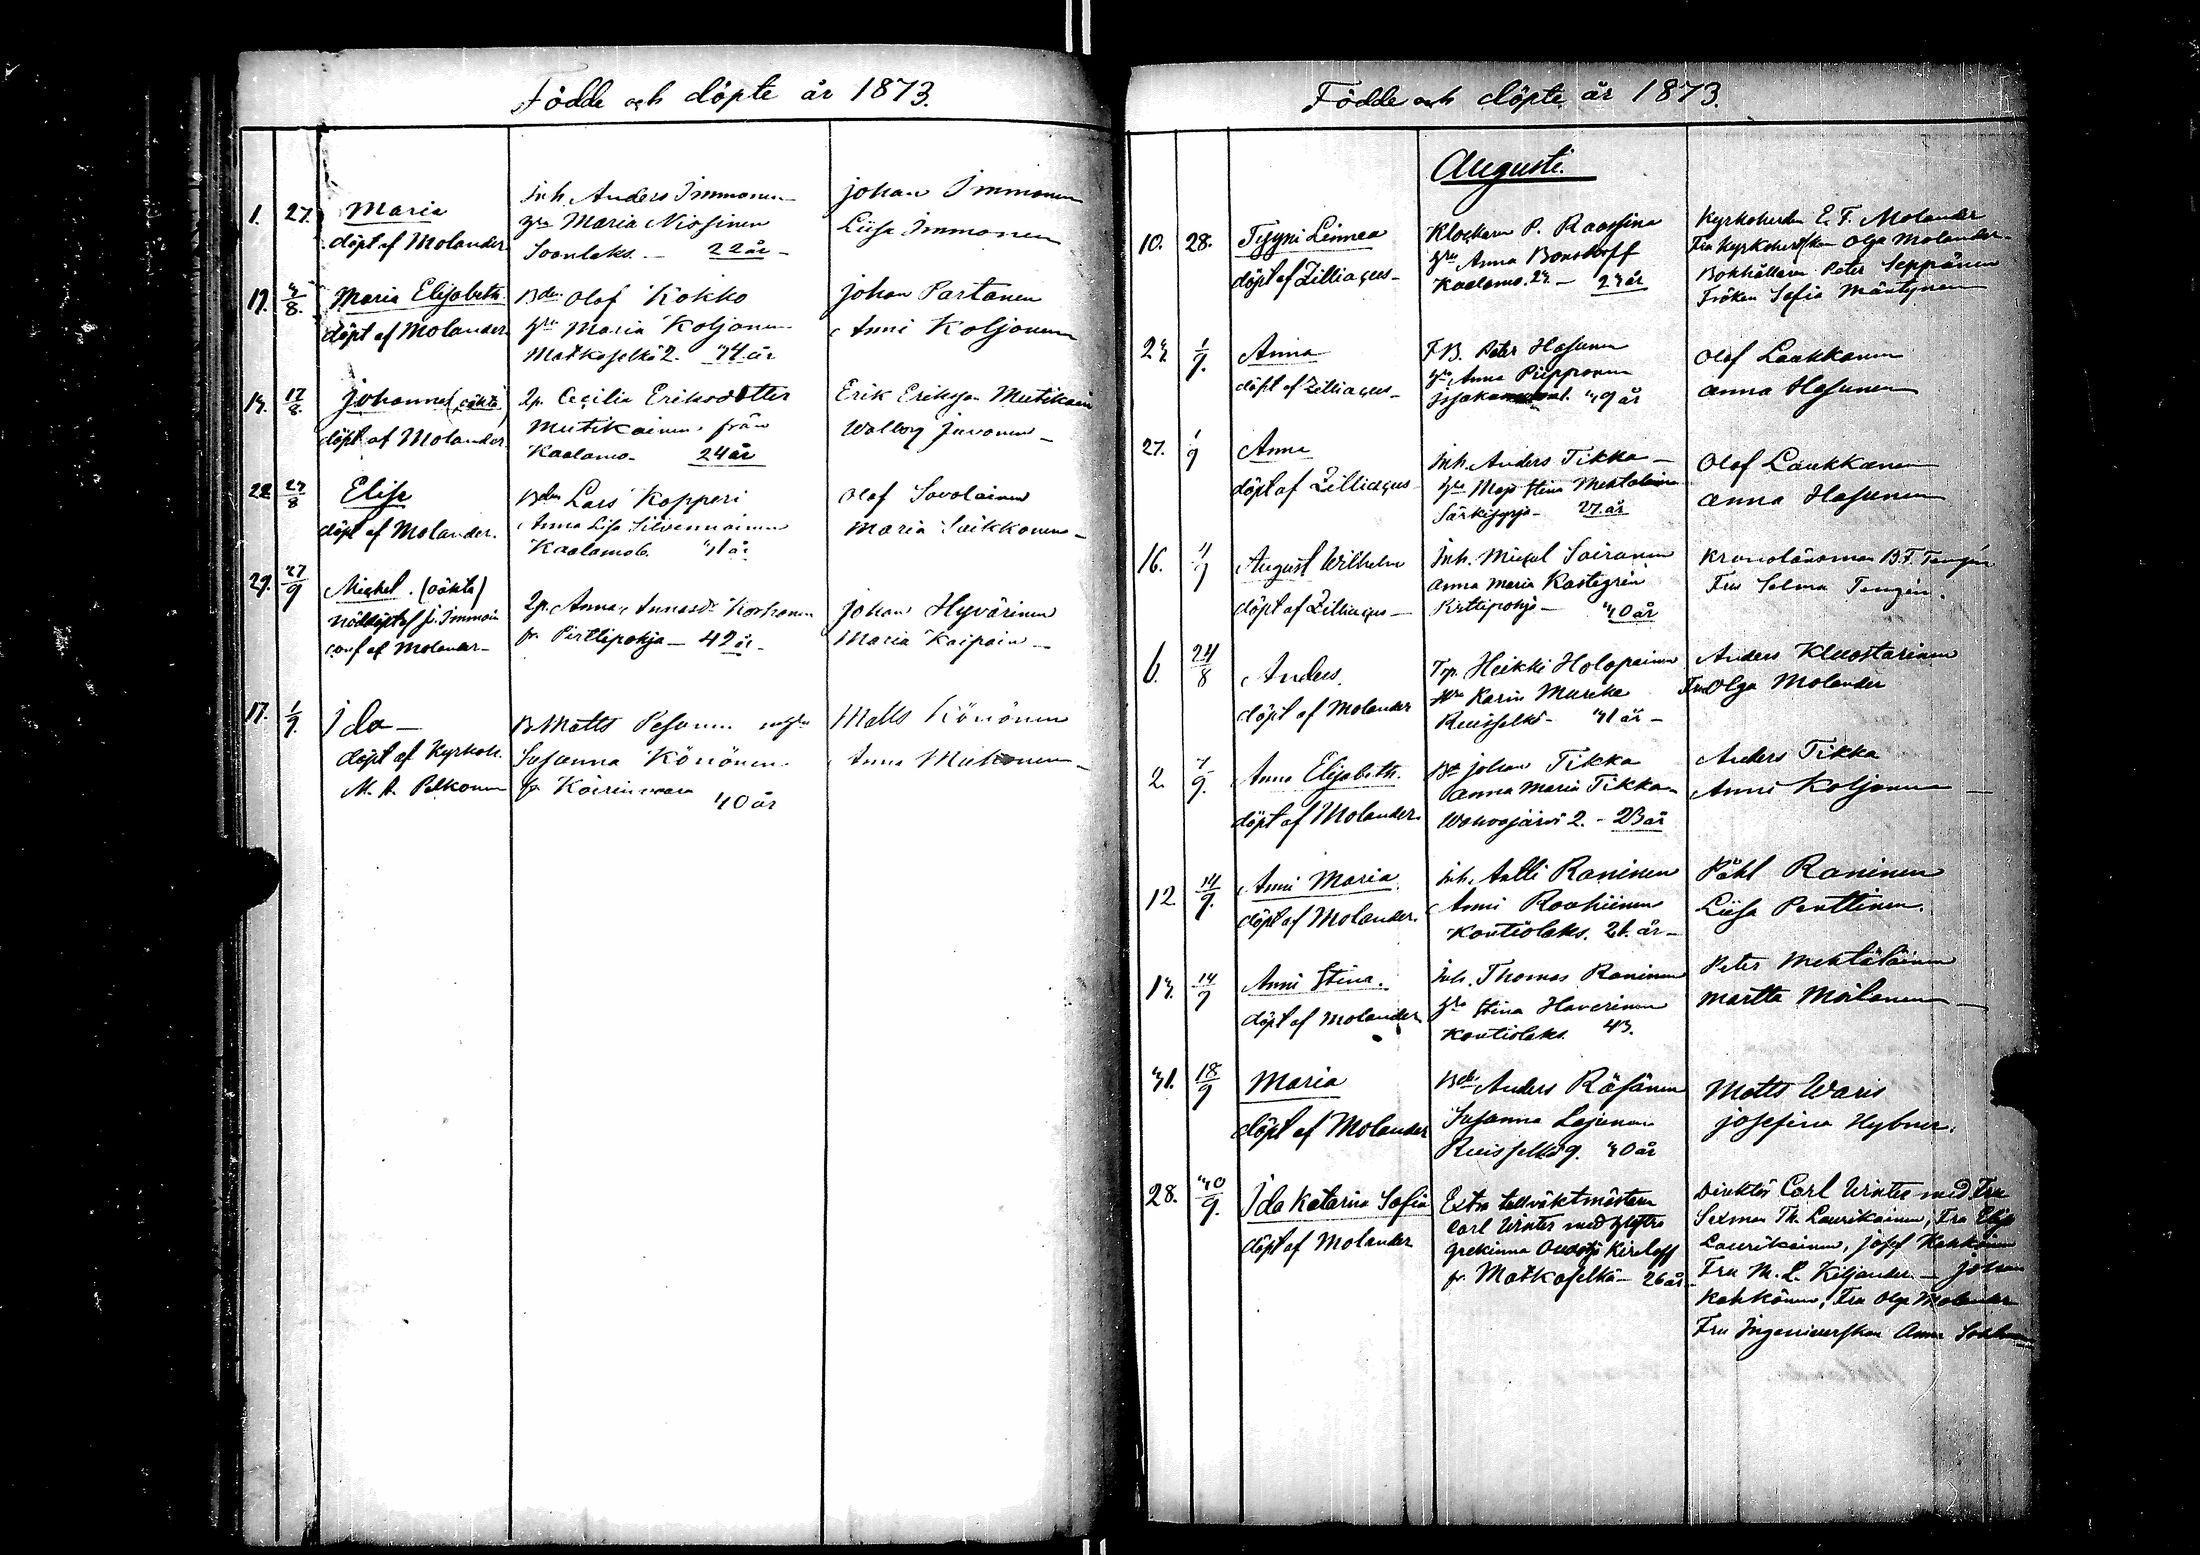 Födde och döpte år 1873.
1. 27. Maria
döpt af Molander
Inh. Anders Immonen
Maria Nissinen
Soanlaks. 22 år
Johan Immonen
Liisa Immonen
17. 3/8. Maria Elisabeth.
döpt af Molander
Bd. Olof Kokko
Maria Koljonen
Matkaselkä 2. 34 år
Johan Partanen
Anni Koljonen
13. 17/8. Johannes (oäkta)
döpt af Molander.
Cecilia Eriksdotter
Mutikainen från
Kaalamo. 24 år
Erik Eriksson Mutikain
Walborg Juvonen
22 23/8 Elise
döpt af Molander.
Bd. Lars Kopperi
Anna Lisa Silvennoinen
Kaalamo 6. 31 år
Olof Savolainen
Maria Saikkonen
29. 27/9 Michel. (oäkta)
nöddöpt af J. Immoin
conf af Molander
Anna Kostonen
fr. Pirttipohja 42 år
Johan Hyvärinen
Maria Kaipain
17. 1/9. Ida
döpt af Kyrkoh.
M. A. Pelkonen
B. Matts Pesonen
Susanna Könönen
fr. Koirinvaara
30 år
Matts Könönen
Anna Mukonen
Födde och döpte år 1873.
Augusti.
10. 28. Tyyni Linnea
döpt af Zilliacus
Klockaren P. Raassina
Anna Bonsdorff
Kaalamo. 23 23 år
Kyrkoherden E. F. Molander
Fru Kyrkoherdskan Olga Molander
Bokhållaren Peter Seppänen
Fröken Sofia Mäntynen
23 1/9. Anna
döpt af Zilliacus
Peter Hasunen
Anna Piipponen
39 år
Olof Laukkanen
Anna Hasunen
27. 1/9 Anna
döpt af Zilliacus
Inh. Anders Tikka
Maja Stina Mehtälainen
Särkisyrjä 27 år
Olof Laukkanen
Anna Hasunen
16. 4/9 August Wilhelm
döpt af Zilliacus
Inh. Michel Soironen
Anna Maria Kastegrén
Pirttipohja 30 år
Kronolänsman B. F. Tengén
Fru Selma Tengén.
6. 24/8 Anders.
döpt af Molander
Heikki Holopainen
Karin Mureke
Ruisselkä 31 år
Anders Kluostarinen
Fru Olga Molander
2. 7/9. Anna Elisabeth.
döpt af Molander.
Johan Tikka
Anna Maria Tikka
Wahvajärvi 2. 23 år
Anders Tikka
Anni Koljonen
12 14/9. Anni Maria.
döpt af Molander.
Inh. Antti Raninen
Anni Raahiinen
Kontiolaks. 21. år
Påhl Raninen
Liisa Penttinen.
13. 14/9 Anni Stina.
döpt af Molander
Inh. Thomas Raninen
Stina Haverinen
Kontiolaks. 43.
Peter Mehtäläinen
Martta Moilanen
31. 18/9 Maria
döpt af Molander
Bd. Anders Räsänen
Susanna Lajunen
Ruisselkä 9. 30 år
Matts Waris
Josefina Hybner.
28. 30/9. Ida Katarina Sofia
döpt af Molander
Extra tullvaktmästare
Carl Winter med hustru
grekinna Kiriloff
fr. Matkaselkä 26 år
Direktör Carl Winter med Fru
Sexman Th. Laurikainen, Fru Elisa
Laurikainen, Josef Kahkönen
Fru M. L. Kiljander. Johan
Kahkönen, Fru Olga Molander
Fru Ingenieurskan Anna